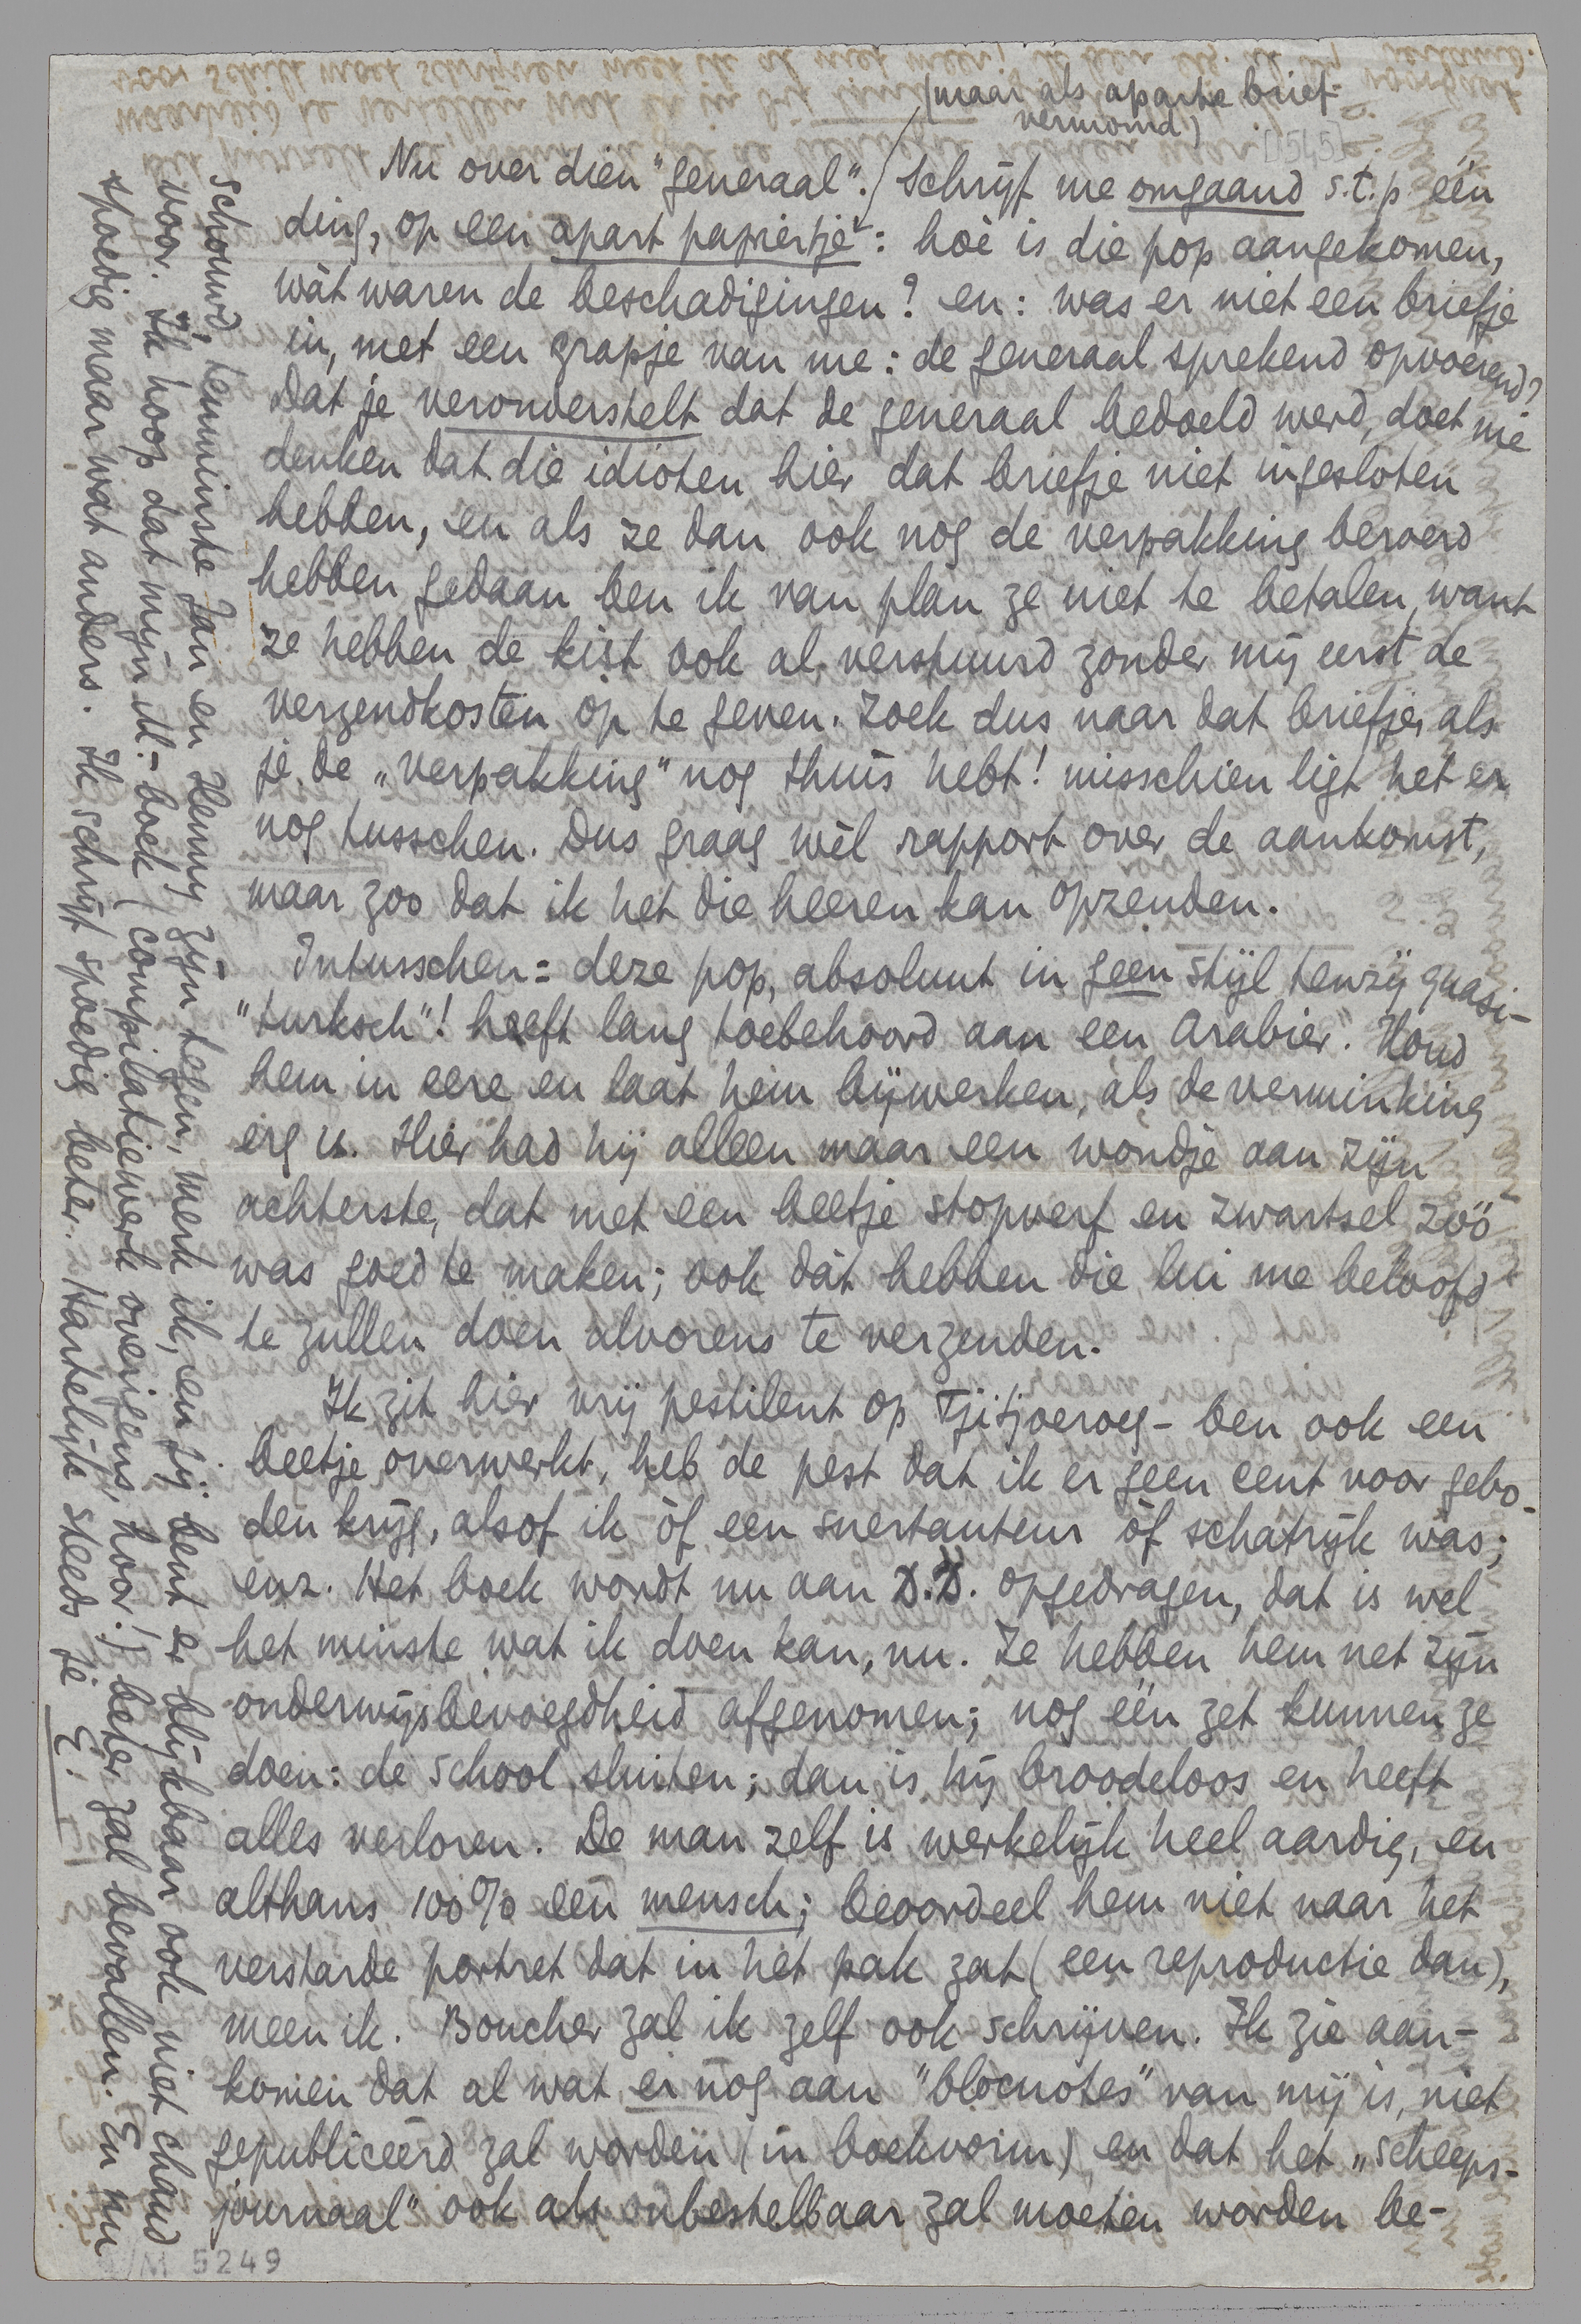 (maar als aparte brief
vermomd)
[1515]
Nu over dien "generaal". / Schrijf me omgaand s.t.p één
ding, op een apart papiertje: hoè is die pop aangekomen,
wàt waren de beschadigingen? en: was er niet een briefje
in, met een grapje van me: de generaal sprekend opvoerend?
Dat je veronderstelt dat de generaal bedoeld werd, doet me
denken dat die idioten hier dat briefje niet ingesloten
hebben, en als ze dan ook nog de verpakking beroerd
hebben gedaan ben ik van plan ze niet te betalen, want
ze hebben de kist ook al verstuurd zonder mij eerst de
verzendkosten op te geven. Zoek dus naar dat briefje, als
je de „verpakking" nog thuis hebt! misschien ligt het er
nog tusschen. Dus graag wèl rapport over de aankomst,
maar zoo dat ik het die heeren kan opzenden.
Intusschen: deze pop, absoluut in geen stijl tenzij quasi-
"turksch"! heeft lang toebehoord aan een Arabier. Houd
hem in eere en laat hem bijwerken, als de verminking
erg is. Hier had hij alleen maar een wondje aan zijn
achterste, dat met een beetje stopverf en zwartsel zóó
was goed te maken; ook dàt hebben die lui me beloofd
te zullen doen alvorens te verzenden.
Ik zit hier vrij pestilent op Tjitjoeroeg - ben ook een
beetje overwerkt, heb de pest dat ik er geen cent voor gebo-
den krijg, alsof ik òf een snertauteur òf schatrijk was;
enz. Het boek wordt nu aan D.D. opgedragen, dat is wel
het minste wat ik doen kan, nu. Ze hebben hem net zijn
onderwijsbevoegdheid afgenomen; nog één zet kunnen ze
doen: de school sluiten; dan is hij broodeloos en heeft
alles verloren. De man zelf is werkelijk heel aardig, en
althans 100% een mensch; beoordeel hem niet naar het
verstarde portret dat in het pak zat (een reproductie dan),
meen ik. Boucher zal ik zelf ook schrijven. Ik zie aan-
komen dat al wat er nog aan "blocnotes" van mij is, niet
gepubliceerd zal worden (in boekvorm) en dat het „scheeps-
journaal" ook als onbestelbaar zal moeten worden be-
schouwd; tenminste Jan en Henny zijn tegen, merk ik, en jij bent er blijkbaar ook niet chaud
voor. Ik hoop dat mijn M.-boek (compilatiewerk overigens, hoor!) beter zal bevallen. En nu
spoedig maar wat anders. Ik schrijf spoedig beter. Hartelijk steeds je E.
M 5249